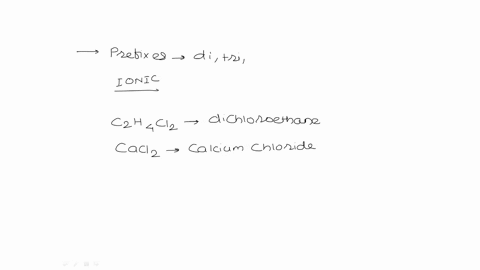 → Prefixes → di, tri,
IONIC
C₂H₄Cl₂ → dichloroethane
CaCl₂ → Calcium Chloride